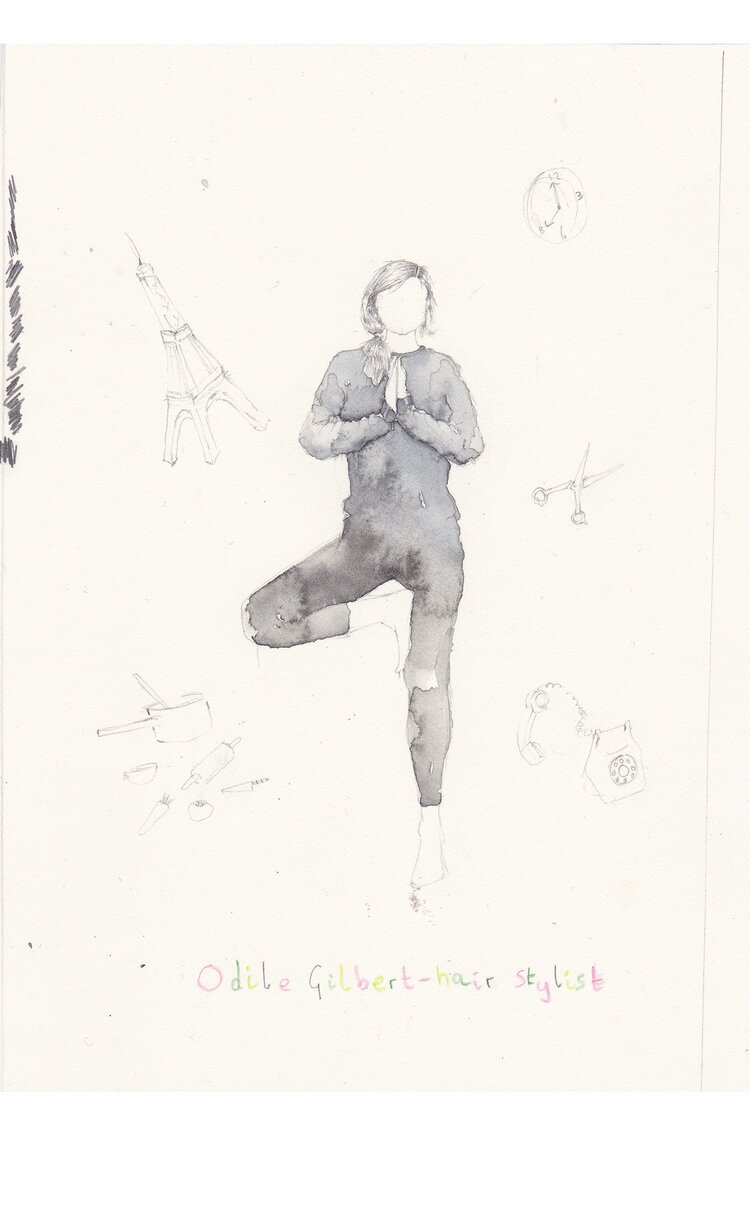 12
3
8
6
Odile Gilbert-hair stylist